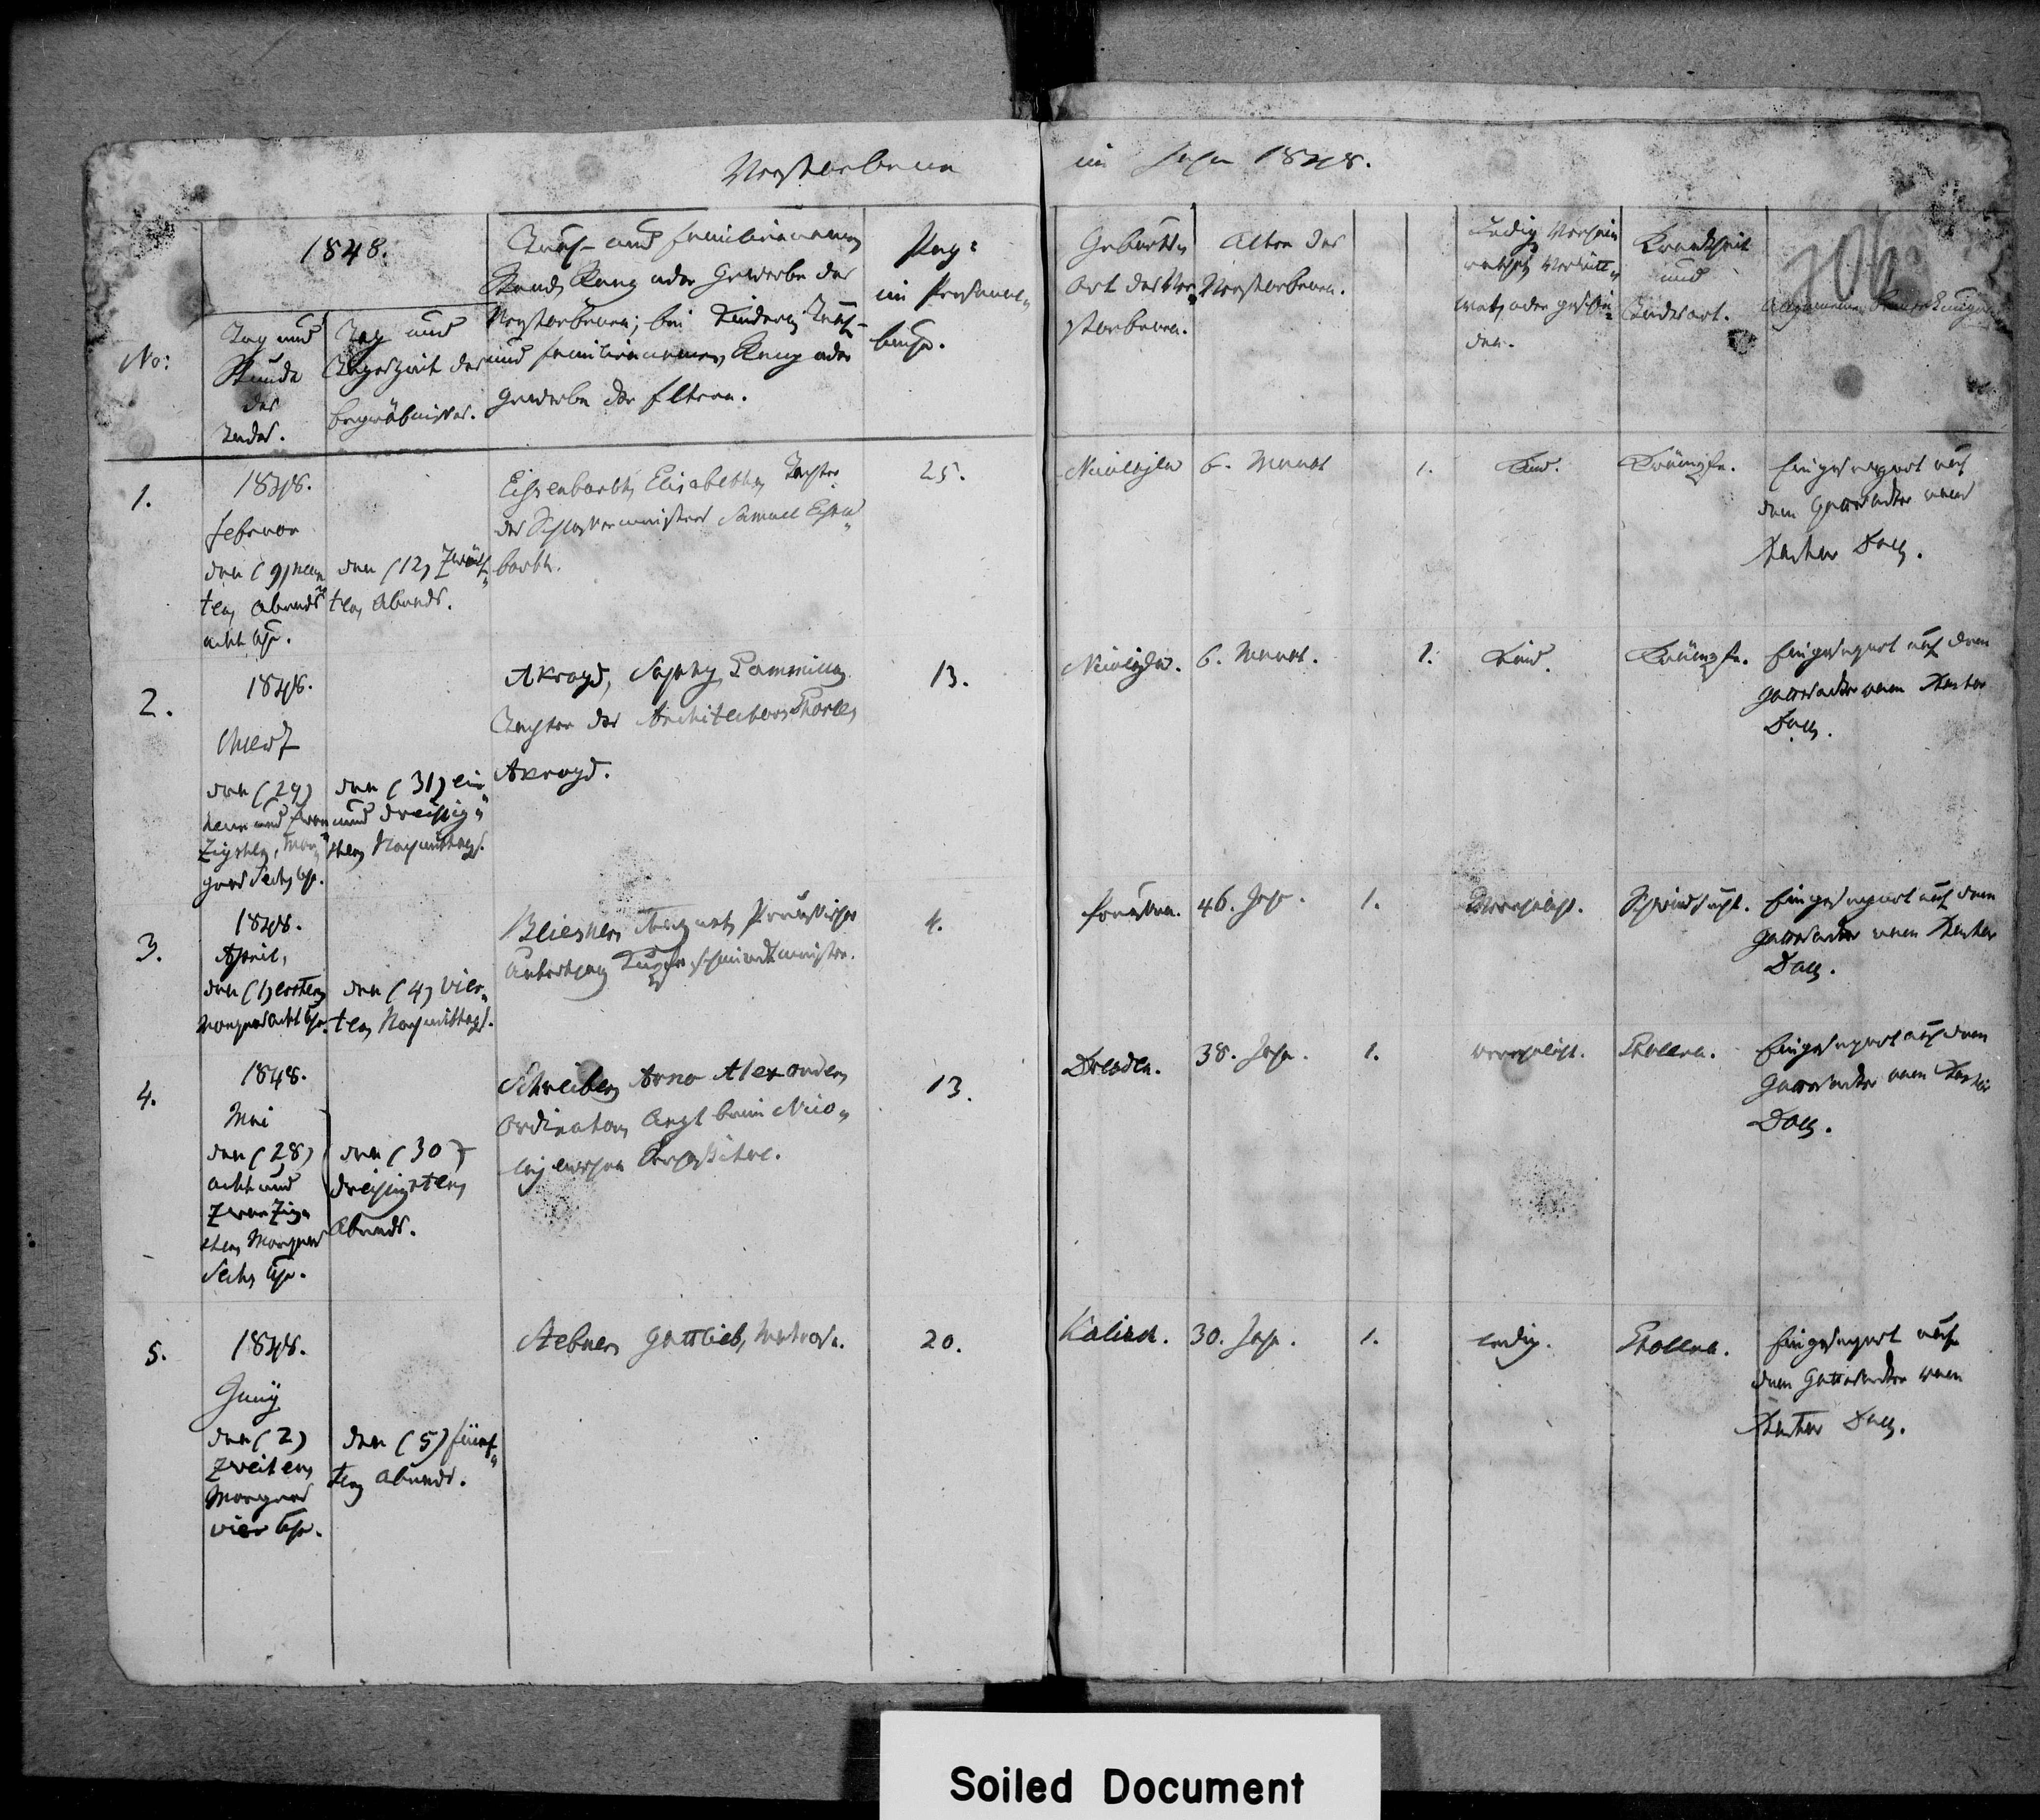 Verstorbene im Jahr 1848.
No:
1848.
Tag und
Stunde
des
Todes.
Tag und
Tageszeit des
Begräbnisses.
Tauf- und Familiennamen,
Stand, Rang oder Gewerbe des
Verstorbenen; bei Kindern Tauf-
und Familiennamen, Rang oder
Gewerbe der Eltern.
Pag:
im Personal„
buche.
Geburts„
ort des Ver„
storbenen.
Alter des
Verstorbenen.
Ledig, Verhei
rathet, Verwitt„
wet, oder geschie„
den.
Krankheit
und
Todesart.
Allgemeine Bemerkungen
1.
1848.
Februar
den (9) neun
ten, Abends
acht Uhr.
den (12) Zwölf„
ten, Abends.
Eisenbarth, Elisabeth, Tochter
des Schlossermeisters Samuel Eisen„
barth.
25.
Nicolajew
6. Monat
1.
Kind.
Krämpfe.
Eingesegnet auf
dem Gottesacker vom
Pastor Doll.
2.
1848.
März
den (29)
neun und zwan
zigsten, Mor„
gens sechs Uhr.
den (31) ein
und dreißig„
sten, Nachmittags.
Akroyd, Sophy
Tochter des Architecten Charles
Akroyd.
13.
Nicolajew.
6. Monat.
1.
Kind.
Krämpfe.
Eingesegnet auf dem
Gottesacker vom Pastor
Doll.
3.
1848.
April,
den (1) ersten,
Morgens acht Uhr.
den (4) vier„
ten, Nachmittags.
Preußischer
Unterthan, Kupferschmiedtmeister.
4.
Preußen.
46. Jahr.
1.
Verehelicht.
Schwindsucht.
Eingesegnet auf dem
Gottesacker vom Pastor
Doll.
4.
1848.
Mai
den (28)
acht und
Zwanzig„
sten, Morgens
Sechs Uhr.
den (30)
dreißigsten,
Abends.
Schreiber, Arno Alexander,
Ordinator, Arzt beim Nico„
lajewschen Hospitale.
13.
Dresden.
38. Jahr.
1.
verehelicht.
Cholera.
Eingesegnet auf dem
Gottesacker vom Pastor
Doll.
5.
1848.
Juny
den (2)
zweiten,
Morgens
vier Uhr.
den (5) fünf„
ten, Abends.
Stebner, Gottlieb, Matrose.
20.
Kalisch.
30. Jahr.
1.
ledig.
Cholera.
Eingesegnet auf
dem Gottesacker vom
Pastor Doll.
Soiled Document